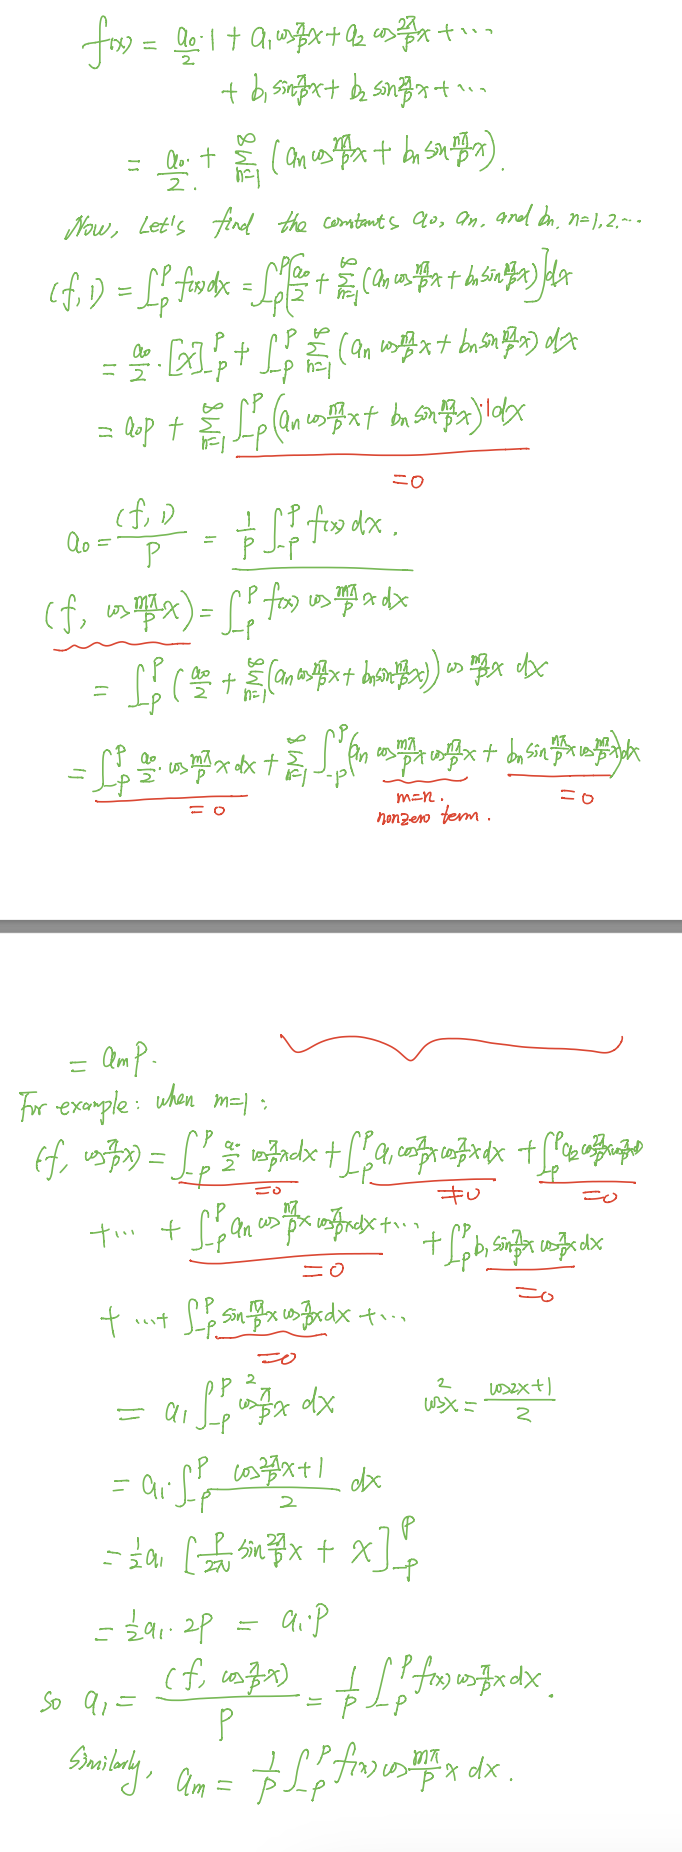 f(x) = a₀/2 · 1 + a₁ cos π/p x + a₂ cos 2π/p x + ⋯
+ b₁ sin π/p x + b₂ sin 2π/p x + ⋯
= a₀/2 + ∑_{n=1}^{∞} (aₙ cos nπ/p x + bₙ sin nπ/p x).
Now, Let's find the constants a₀, aₙ, and bₙ. n=1,2,⋯
(f, 1) = ∫_{-p}^{p} f(x) dx = ∫_{-p}^{p} (a₀/2 + ∑_{n=1}^{∞} (aₙ cos nπ/p x + bₙ sin nπ/p x)] dx
= a₀/2 · [x]_{-p}^{p} + ∫_{-p}^{p} ∑_{n=1}^{∞} (aₙ cos nπ/p x + bₙ sin nπ/p x) dx
= a₀p + ∑_{n=1}^{∞} ∫_{-p}^{p} (aₙ cos nπ/p x + bₙ sin nπ/p x)·1 dx
=0
a₀ = (f, 1)/p = 1/p ∫_{-p}^{p} f(x) dx.
(f, cos mπ/p x) = ∫_{-p}^{p} f(x) cos mπ/p x dx
= ∫_{-p}^{p} (a₀/2 + ∑_{n=1}^{∞} (aₙ cos nπ/p x + bₙ sin nπ/p x)) cos mπ/p x dx
= ∫_{-p}^{p} a₀/2 · cos mπ/p x dx + ∑_{n=1}^{∞} ∫_{-p}^{p} (aₙ cos mπ/p x cos nπ/p x + bₙ sin nπ/p x cos mπ/p x) dx
= 0 m=n. = 0
nonzero term.
= aₘp.
For example: when m=1:
(f, cos π/p x) = ∫_{-p}^{p} a₀/2 cos π/p x dx + ∫_{-p}^{p} a₁ cos π/p x cos π/p x dx + ∫_{-p}^{p} a₂ cos 2π/p x cos π/p x
=0 ≠0 =0
+⋯ + ∫_{-p}^{p} aₙ cos nπ/p x cos π/p x dx + ⋯ + ∫_{-p}^{p} b₁ sin π/p x cos π/p x dx
=0 =0
+ ⋯+ ∫_{-p}^{p} sin nπ/p x cos π/p x dx + ⋯
=0
= a₁ ∫_{-p}^{p} cos² π/p x dx cos²x = (cos2x+1)/2
= a₁· ∫_{-p}^{p} (cos 2π/p x + 1)/2 dx
= 1/2 a₁ [p/2π sin 2π/p x + x]_{-p}^{p}
= 1/2 a₁ · 2p = a₁·p
so a₁ = (f, cos π/p x)/p = 1/p ∫_{-p}^{p} f(x) cos π/p x dx.
Similarly, aₘ = 1/p ∫_{-p}^{p} f(x) cos mπ/p x dx.